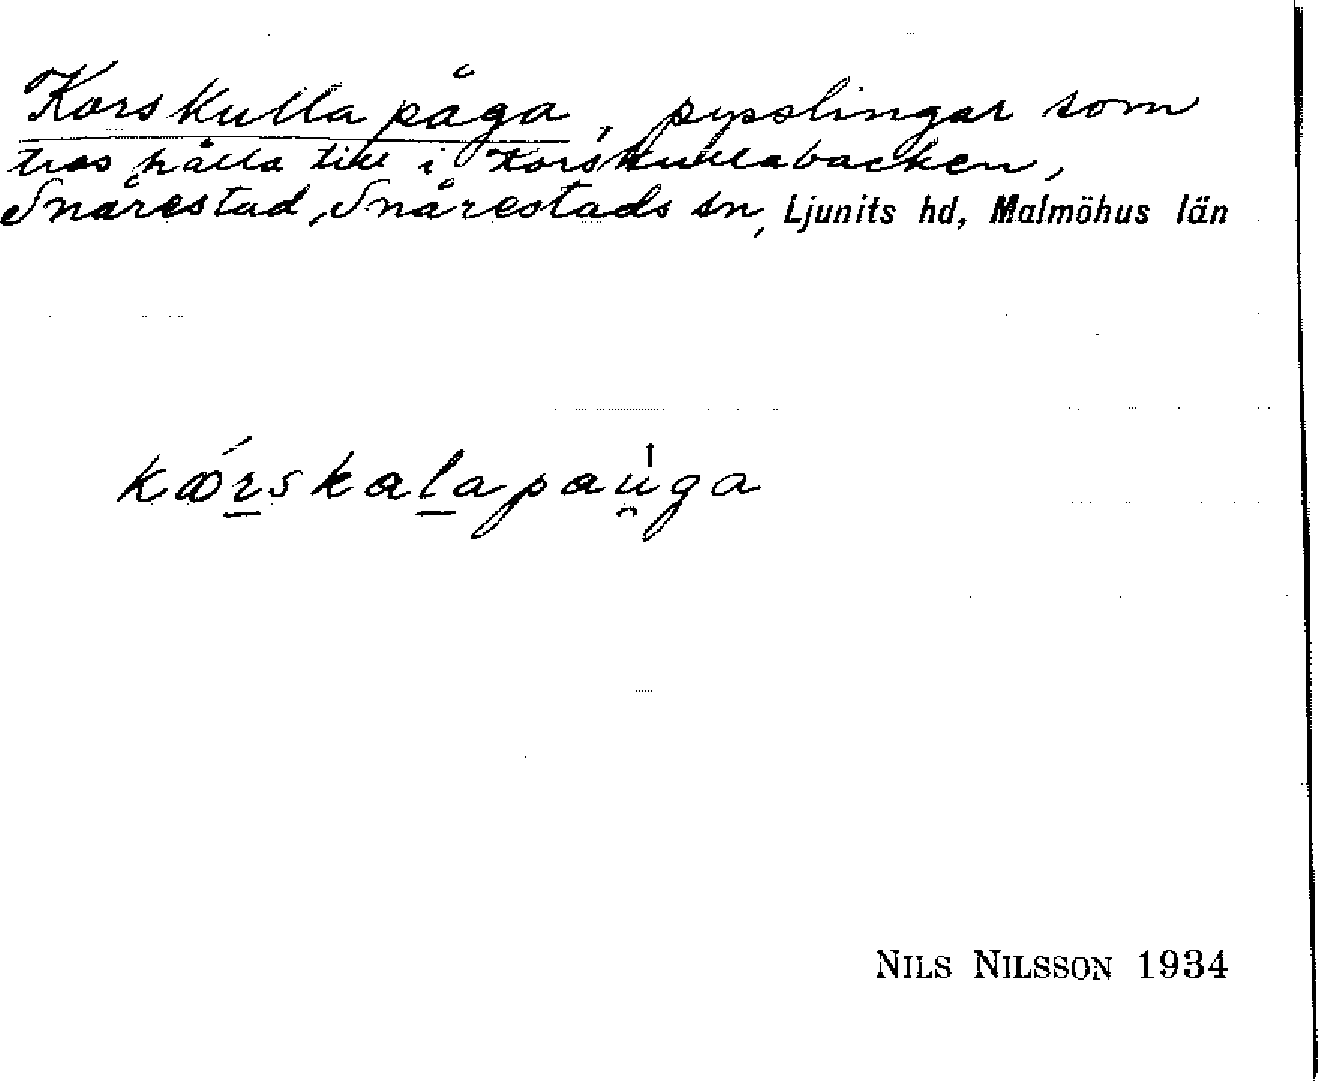 Korskulla påga, pysslingar som
tros hålla till i Korskullabacken,
Snårestad, Snårestads sn, Ljunits hd, Malmöhus län
kǿrskalapau̯ga
NILS NILSSON 1934